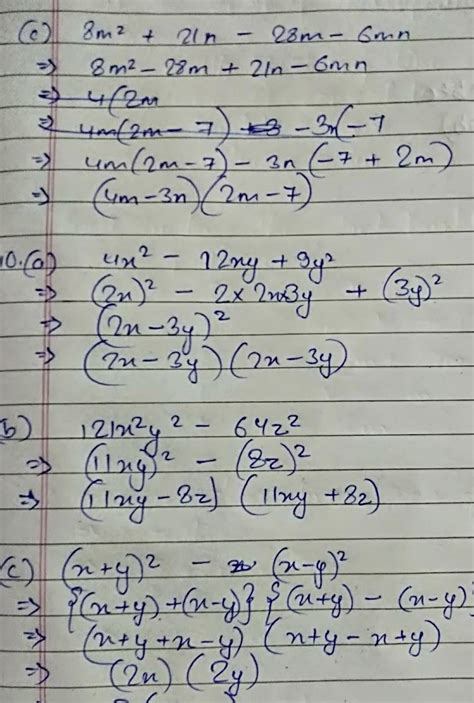 (c) 8m² + 21n - 28m - 6mn
⇒ 8m² - 28m + 21n - 6mn
⇒ 4(2m
⇒ 4m(2m - 7) +3 - 3n(-7
⇒ 4m(2m-7) - 3n (-7 + 2m)
⇒ (4m-3n)(2m-7)
10.(a) 4x² - 12xy + 9y²
⇒ (2x)² - 2×2x×3y + (3y)²
⇒ (2x-3y)²
⇒ (2x-3y)(2x-3y)
b) 121x²y² - 64z²
⇒ (11xy)² - (8z)²
⇒ (11xy-8z) (11xy+8z)
(c) (x+y)² - (x-y)²
⇒ {(x+y)+(x-y)} {(x+y) - (x-y)
⇒ (x+y+x-y) (x+y-x+y)
⇒ (2x) (2y)